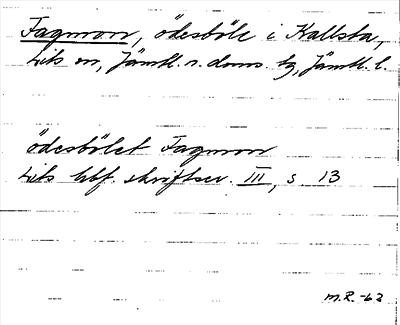 Fagmon, ödesböle i Kallsta,
Lits sn, Jämtl. n. doms. tg, Jämtl. l.
ödesbölet Fagmon
Lits hbf. skriftser. III, s. 13
M.R.-62